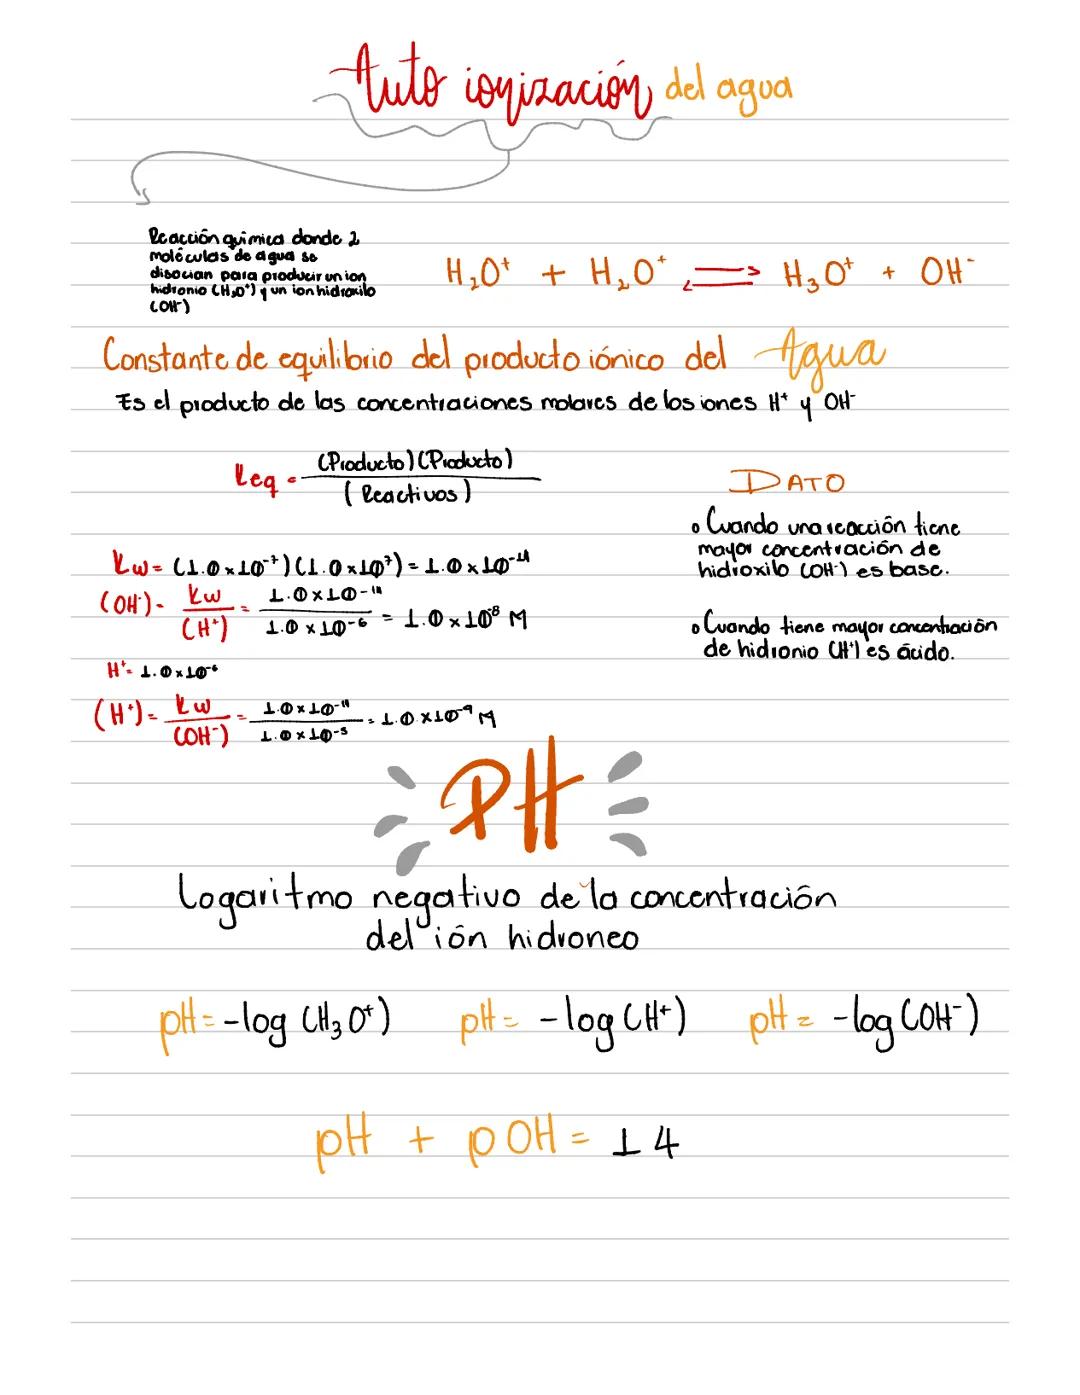 Auto ionización del agua
Reacción química donde 2
moléculas de agua se
disocian para producir un ion
hidronio (H₃O⁺) y un ion hidroxilo
(OH⁻)
H₂O⁺ + H₂O⁺ ⇌ H₃O⁺ + OH⁻
Constante de equilibrio del producto iónico del Agua
Es el producto de las concentraciones molares de los iones H⁺ y OH⁻
Keq = (Producto)(Producto)
(Reactivos)
Kw = (1.0×10⁻⁷)(1.0×10⁷) = 1.0×10⁻¹⁴
(OH⁻) = Kw / (H⁺) = 1.0×10⁻¹⁴ / 1.0×10⁻⁶ = 1.0×10⁸ M
H⁺ = 1.0×10⁻⁶
(H⁺) = Kw / (OH⁻) = 1.0×10⁻¹⁴ / 1.0×10⁻⁵ = 1.0×10⁻⁹ M
DATO
o Cuando una reacción tiene
mayor concentración de
hidroxilo (OH⁻) es base.
o Cuando tiene mayor concentración
de hidronio (H⁺) es ácido.
PH
Logaritmo negativo de la concentración
del ión hidroneo
pH = -log (H₃O⁺) pH = -log (H⁺) pH = -log (OH⁻)
pH + pOH = 14